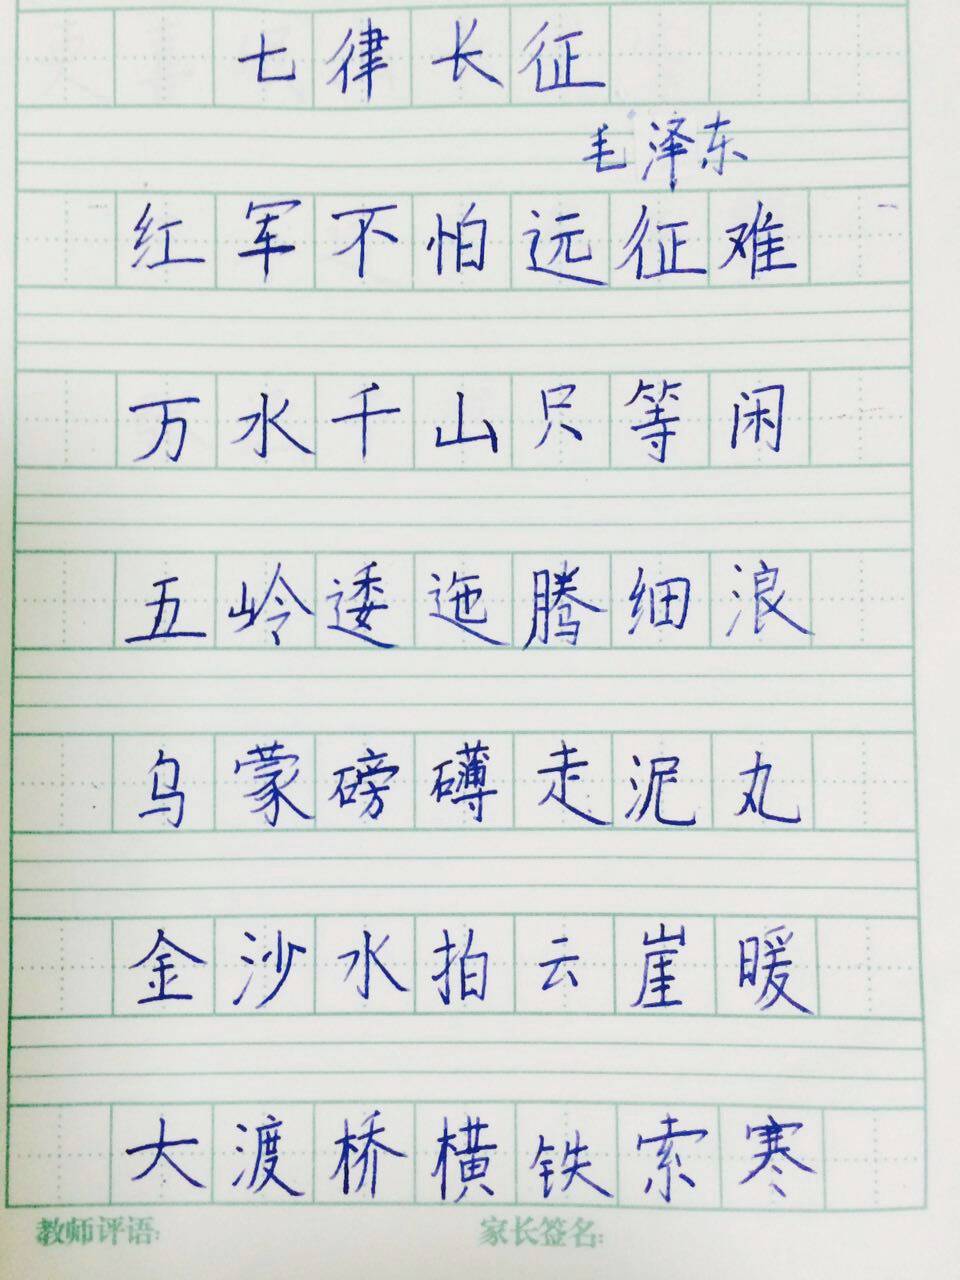 七律长征
毛泽东
红军不怕远征难
万水千山只等闲
五岭逶迤腾细浪
乌蒙磅礴走泥丸
金沙水拍云崖暖
大渡桥横铁索寒
教师评语:
家长签名: